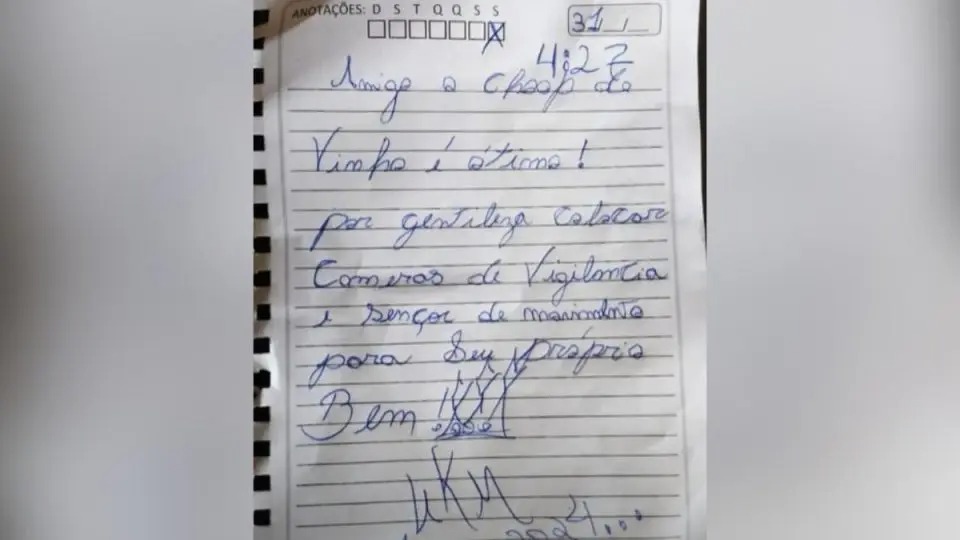 ANOTAÇÕES: D S T Q Q S S
31
4:27
Amigo o chopp de
Vinho é ótimo!
por gentileza colocar
Cameras de Vigilancia
e sençor de movimento
para Seu Próprio
Bem !!!
2024...